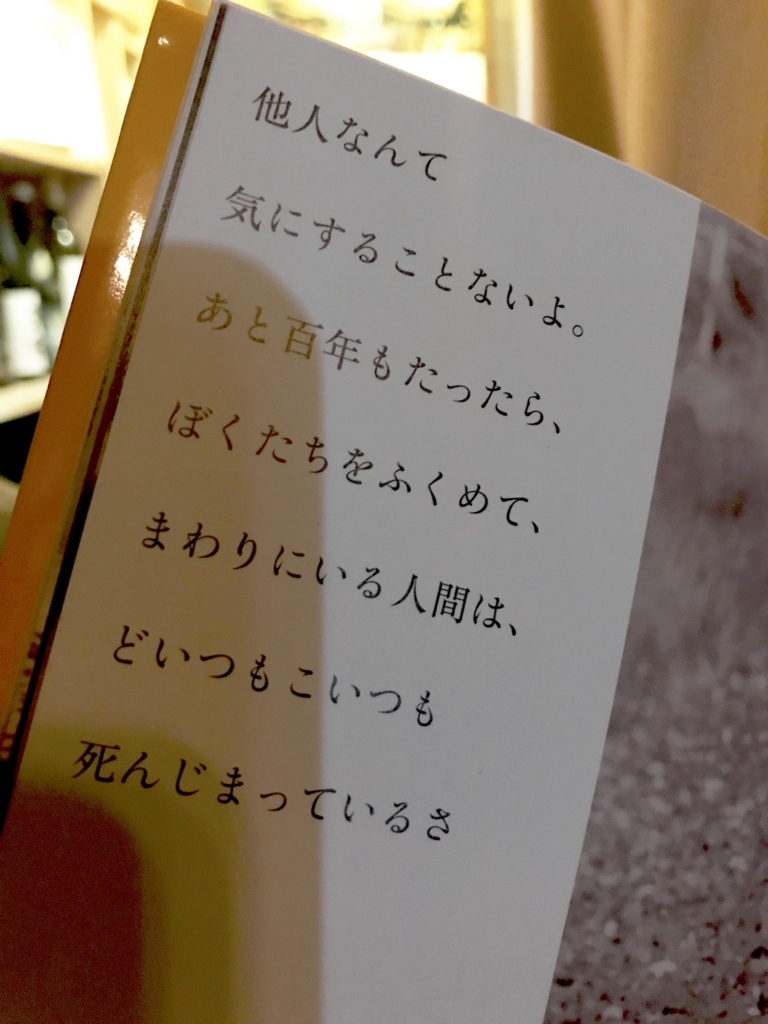 他人なんて
気にすることないよ。
あと百年もたったら、
ぼくたちをふくめて、
まわりにいる人間は、
どいつもこいつも
死んじまっているさ